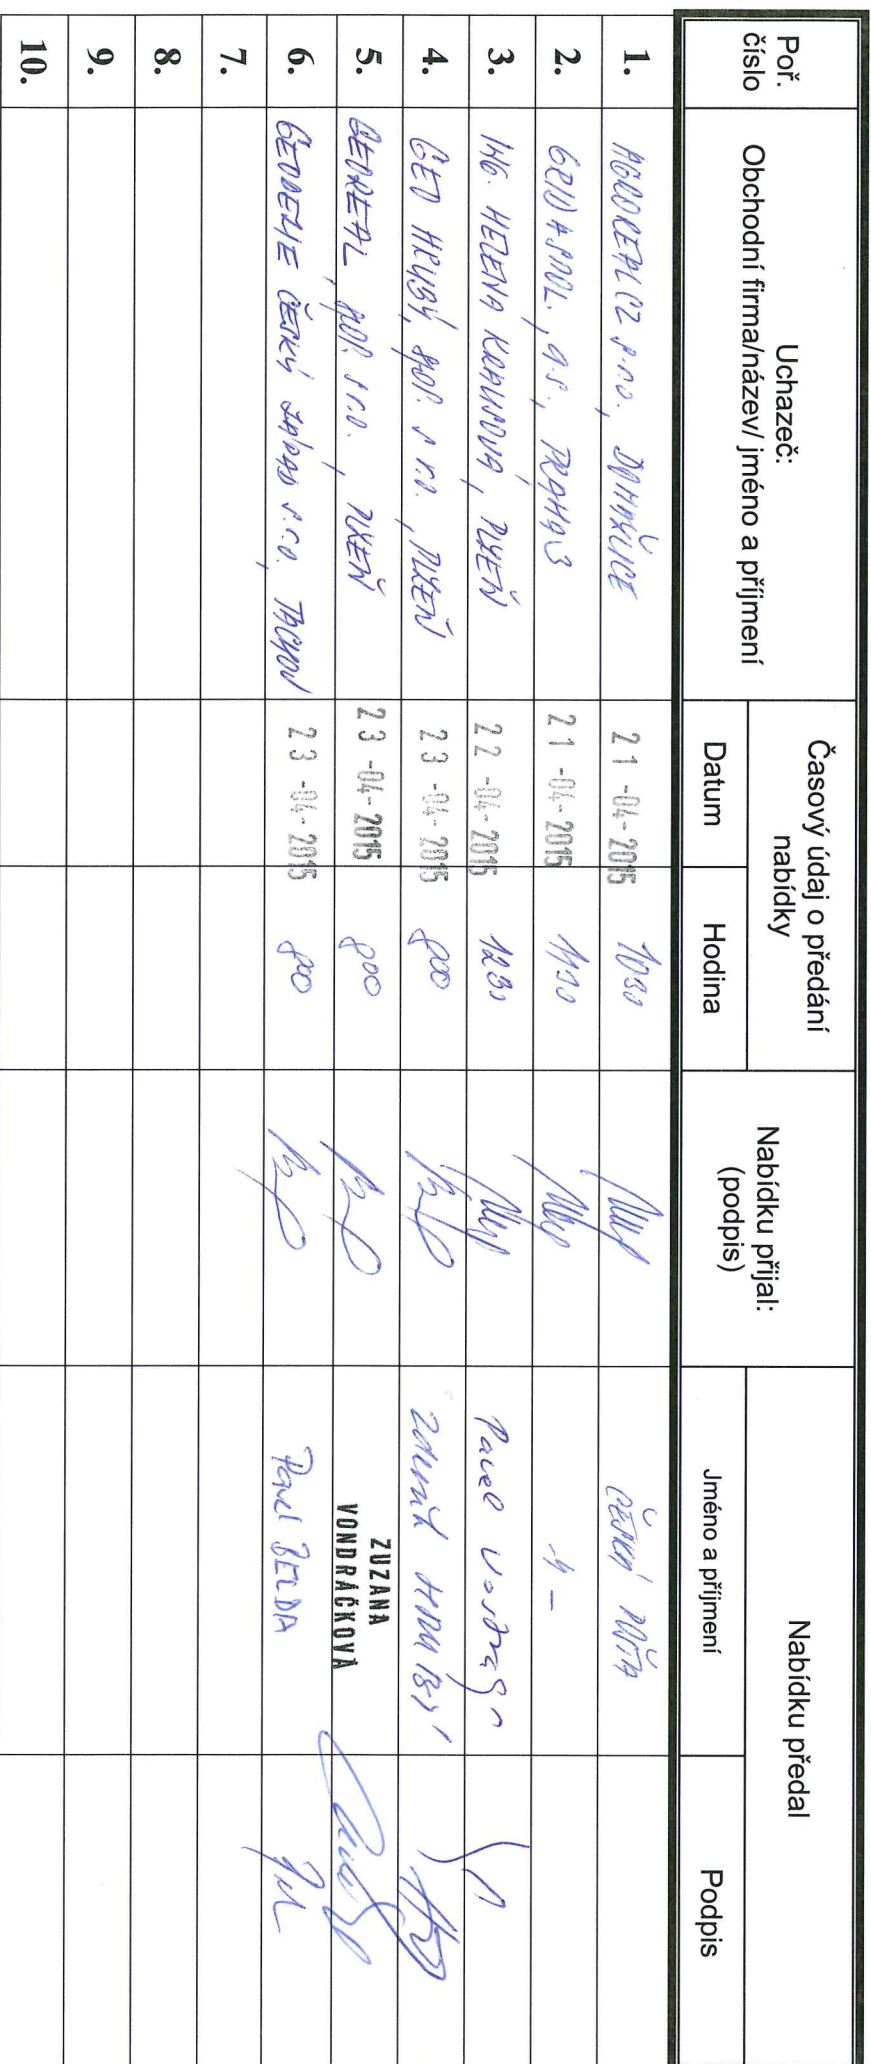 Poř. číslo
Uchazeč:
Obchodní firma/název/ jméno a příjmení
Časový údaj o předání nabídky
Datum
Hodina
Nabídku přijal:
(podpis)
Nabídku předal
Jméno a příjmení
Podpis
1. AGROREAL CZ s.r.o., DOMAŽLICE 21 -04- 2015 10³⁰ ČESKÁ POŠTA
2. GRID A SPOL., a.s., PRAHA 21 -04- 2015 -"-
3. ING. HELENA KRAUSOVÁ, PLZEŇ 22 -04- 2015 12³⁰ Pavel
4. GEO HRUBÝ, spol. s r.o., PLZEŇ 23 -04- 2015 8⁰⁰ Zdeněk HRUBÝ
5. GEOREAL, spol. s r.o., PLZEŇ 23 -04- 2015 8⁰⁰ ZUZANA VONDRÁČKOVÁ
6. GEODEZIE ČESKÝ ZÁPAD s.r.o., TACHOV 23 -04- 2015 8⁰⁰ Pavel BELDA
7.
8.
9.
10.